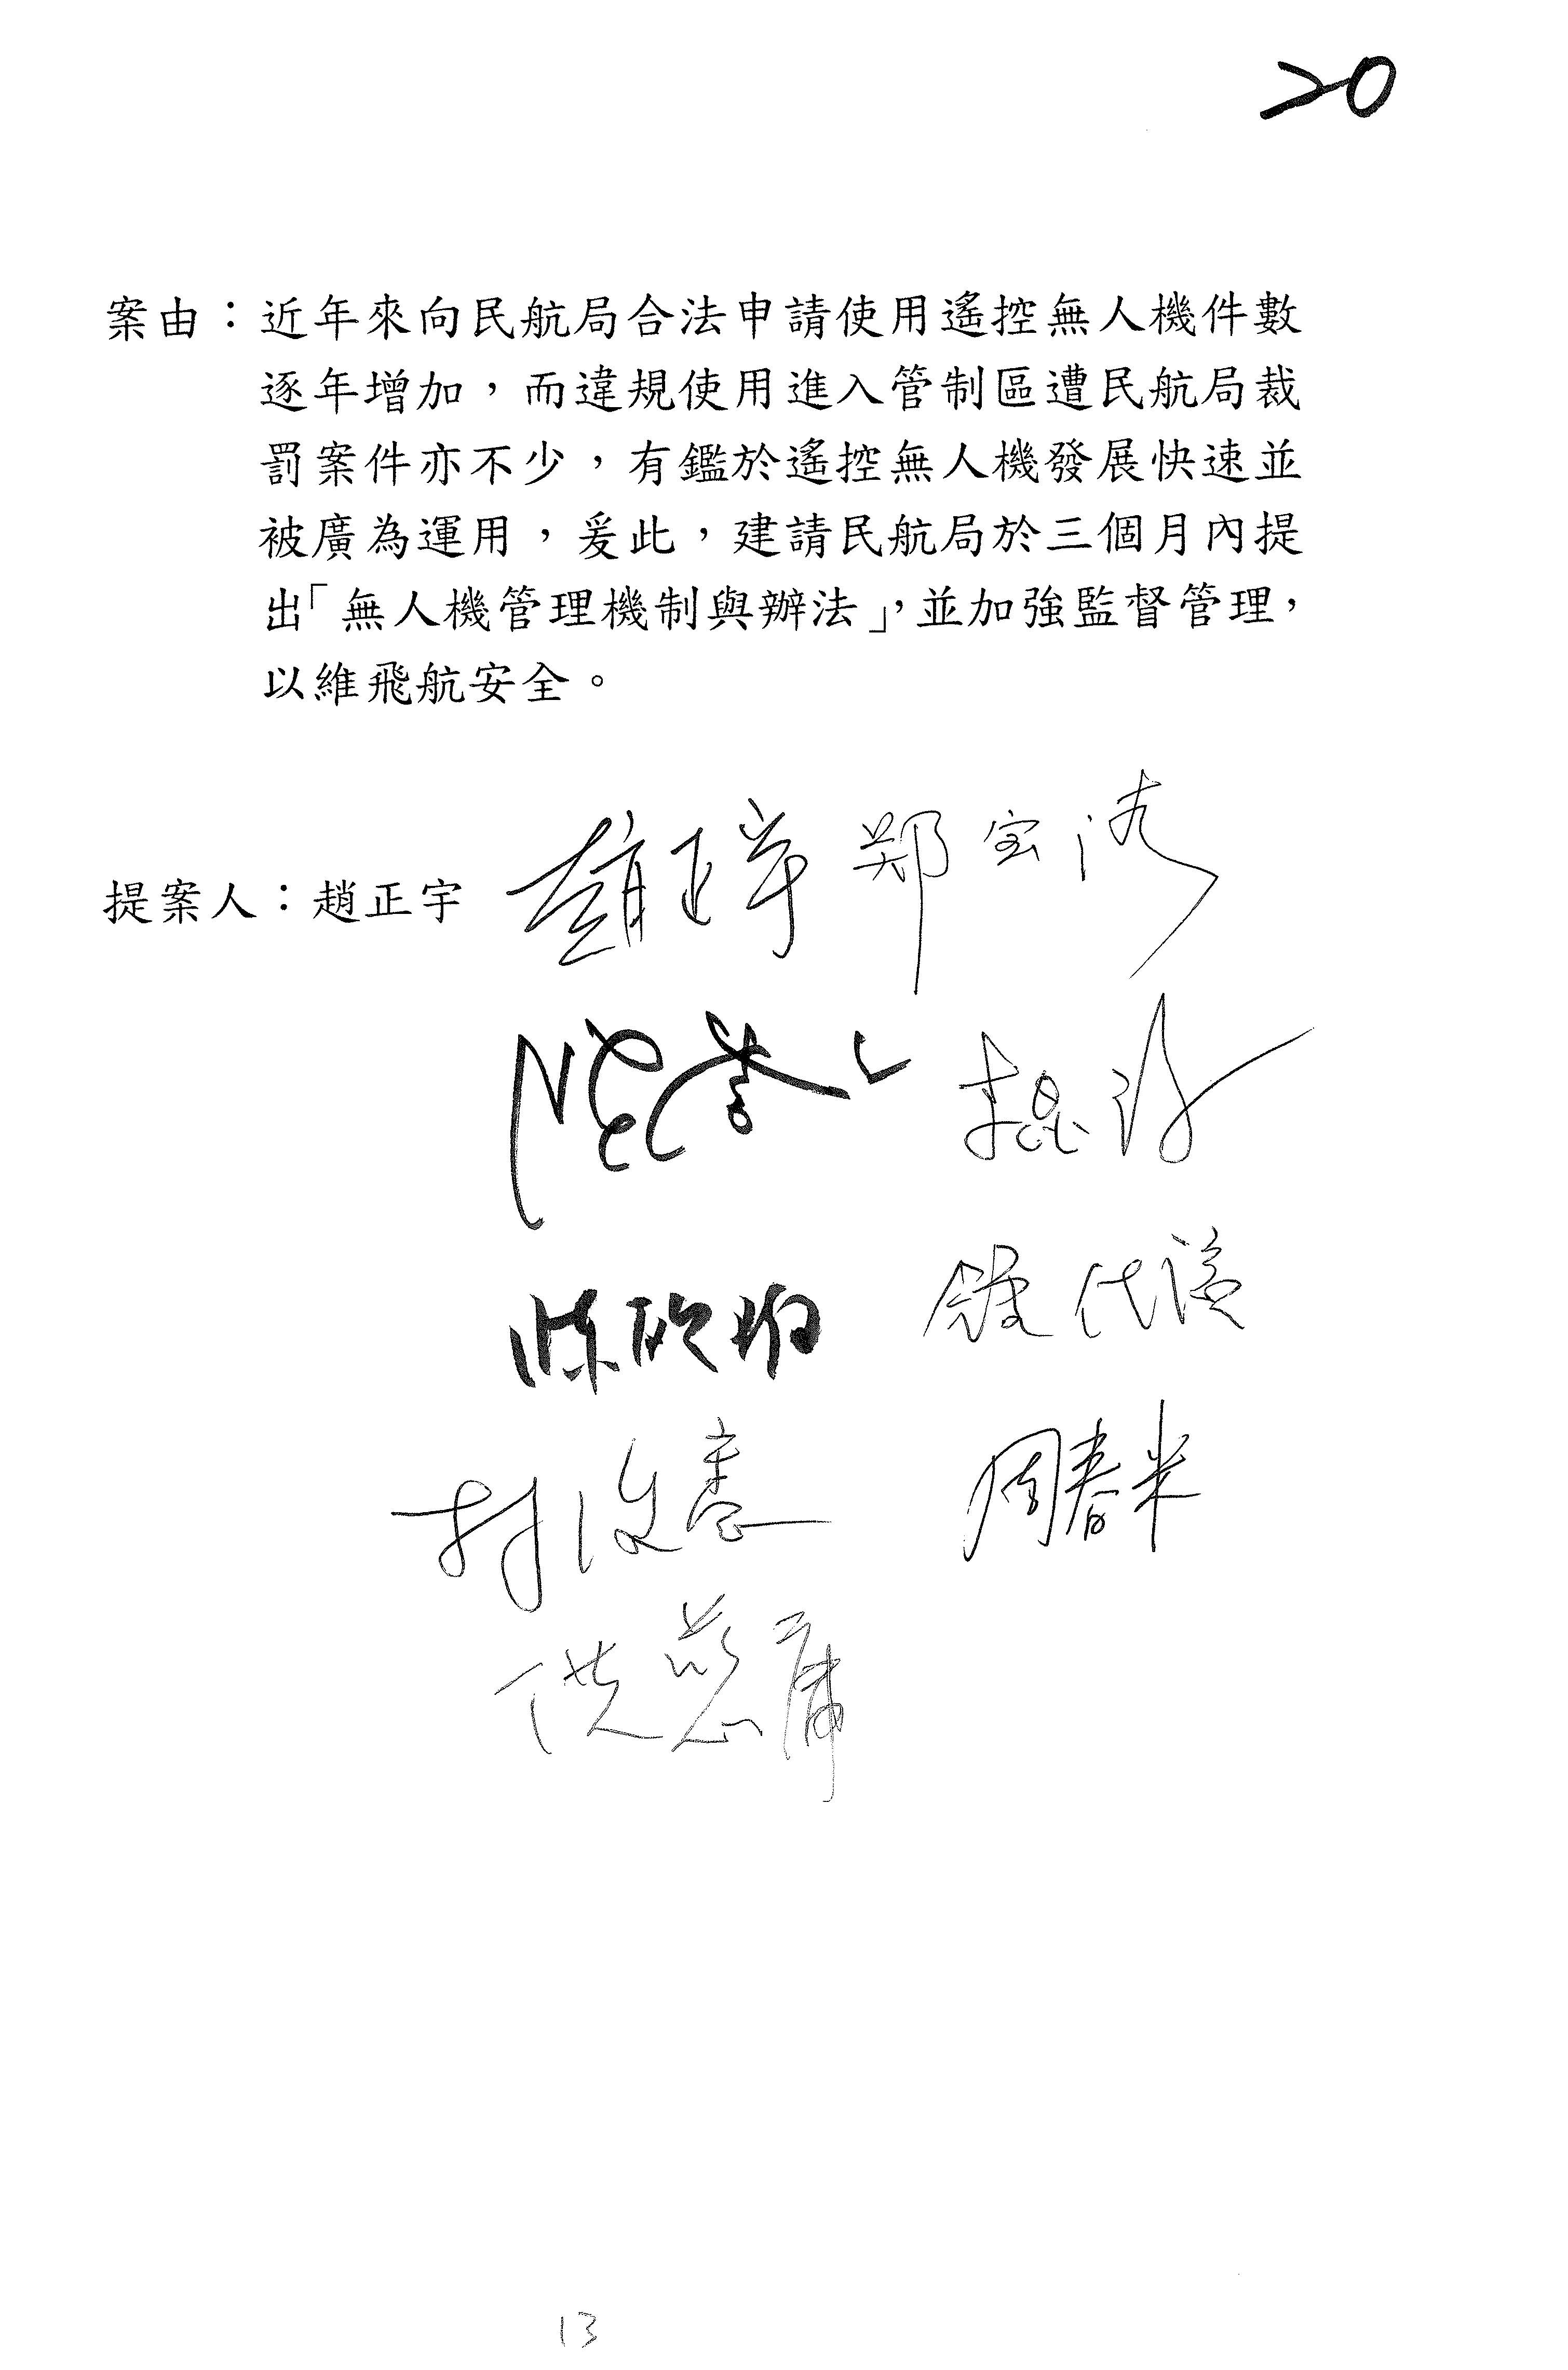 20
案由：近年來向民航局合法申請使用遙控無人機件數
逐年增加，而違規使用進入管制區遭民航局裁
罰案件亦不少，有鑑於遙控無人機發展快速並
被廣為運用，爰此，建請民航局於三個月內提
出「無人機管理機制與辦法」，並加強監督管理，
以維飛航安全。
提案人：趙正宇 趙正宇 鄭宝清
陳歐珀
林俊憲 周春米
洪慈庸
13